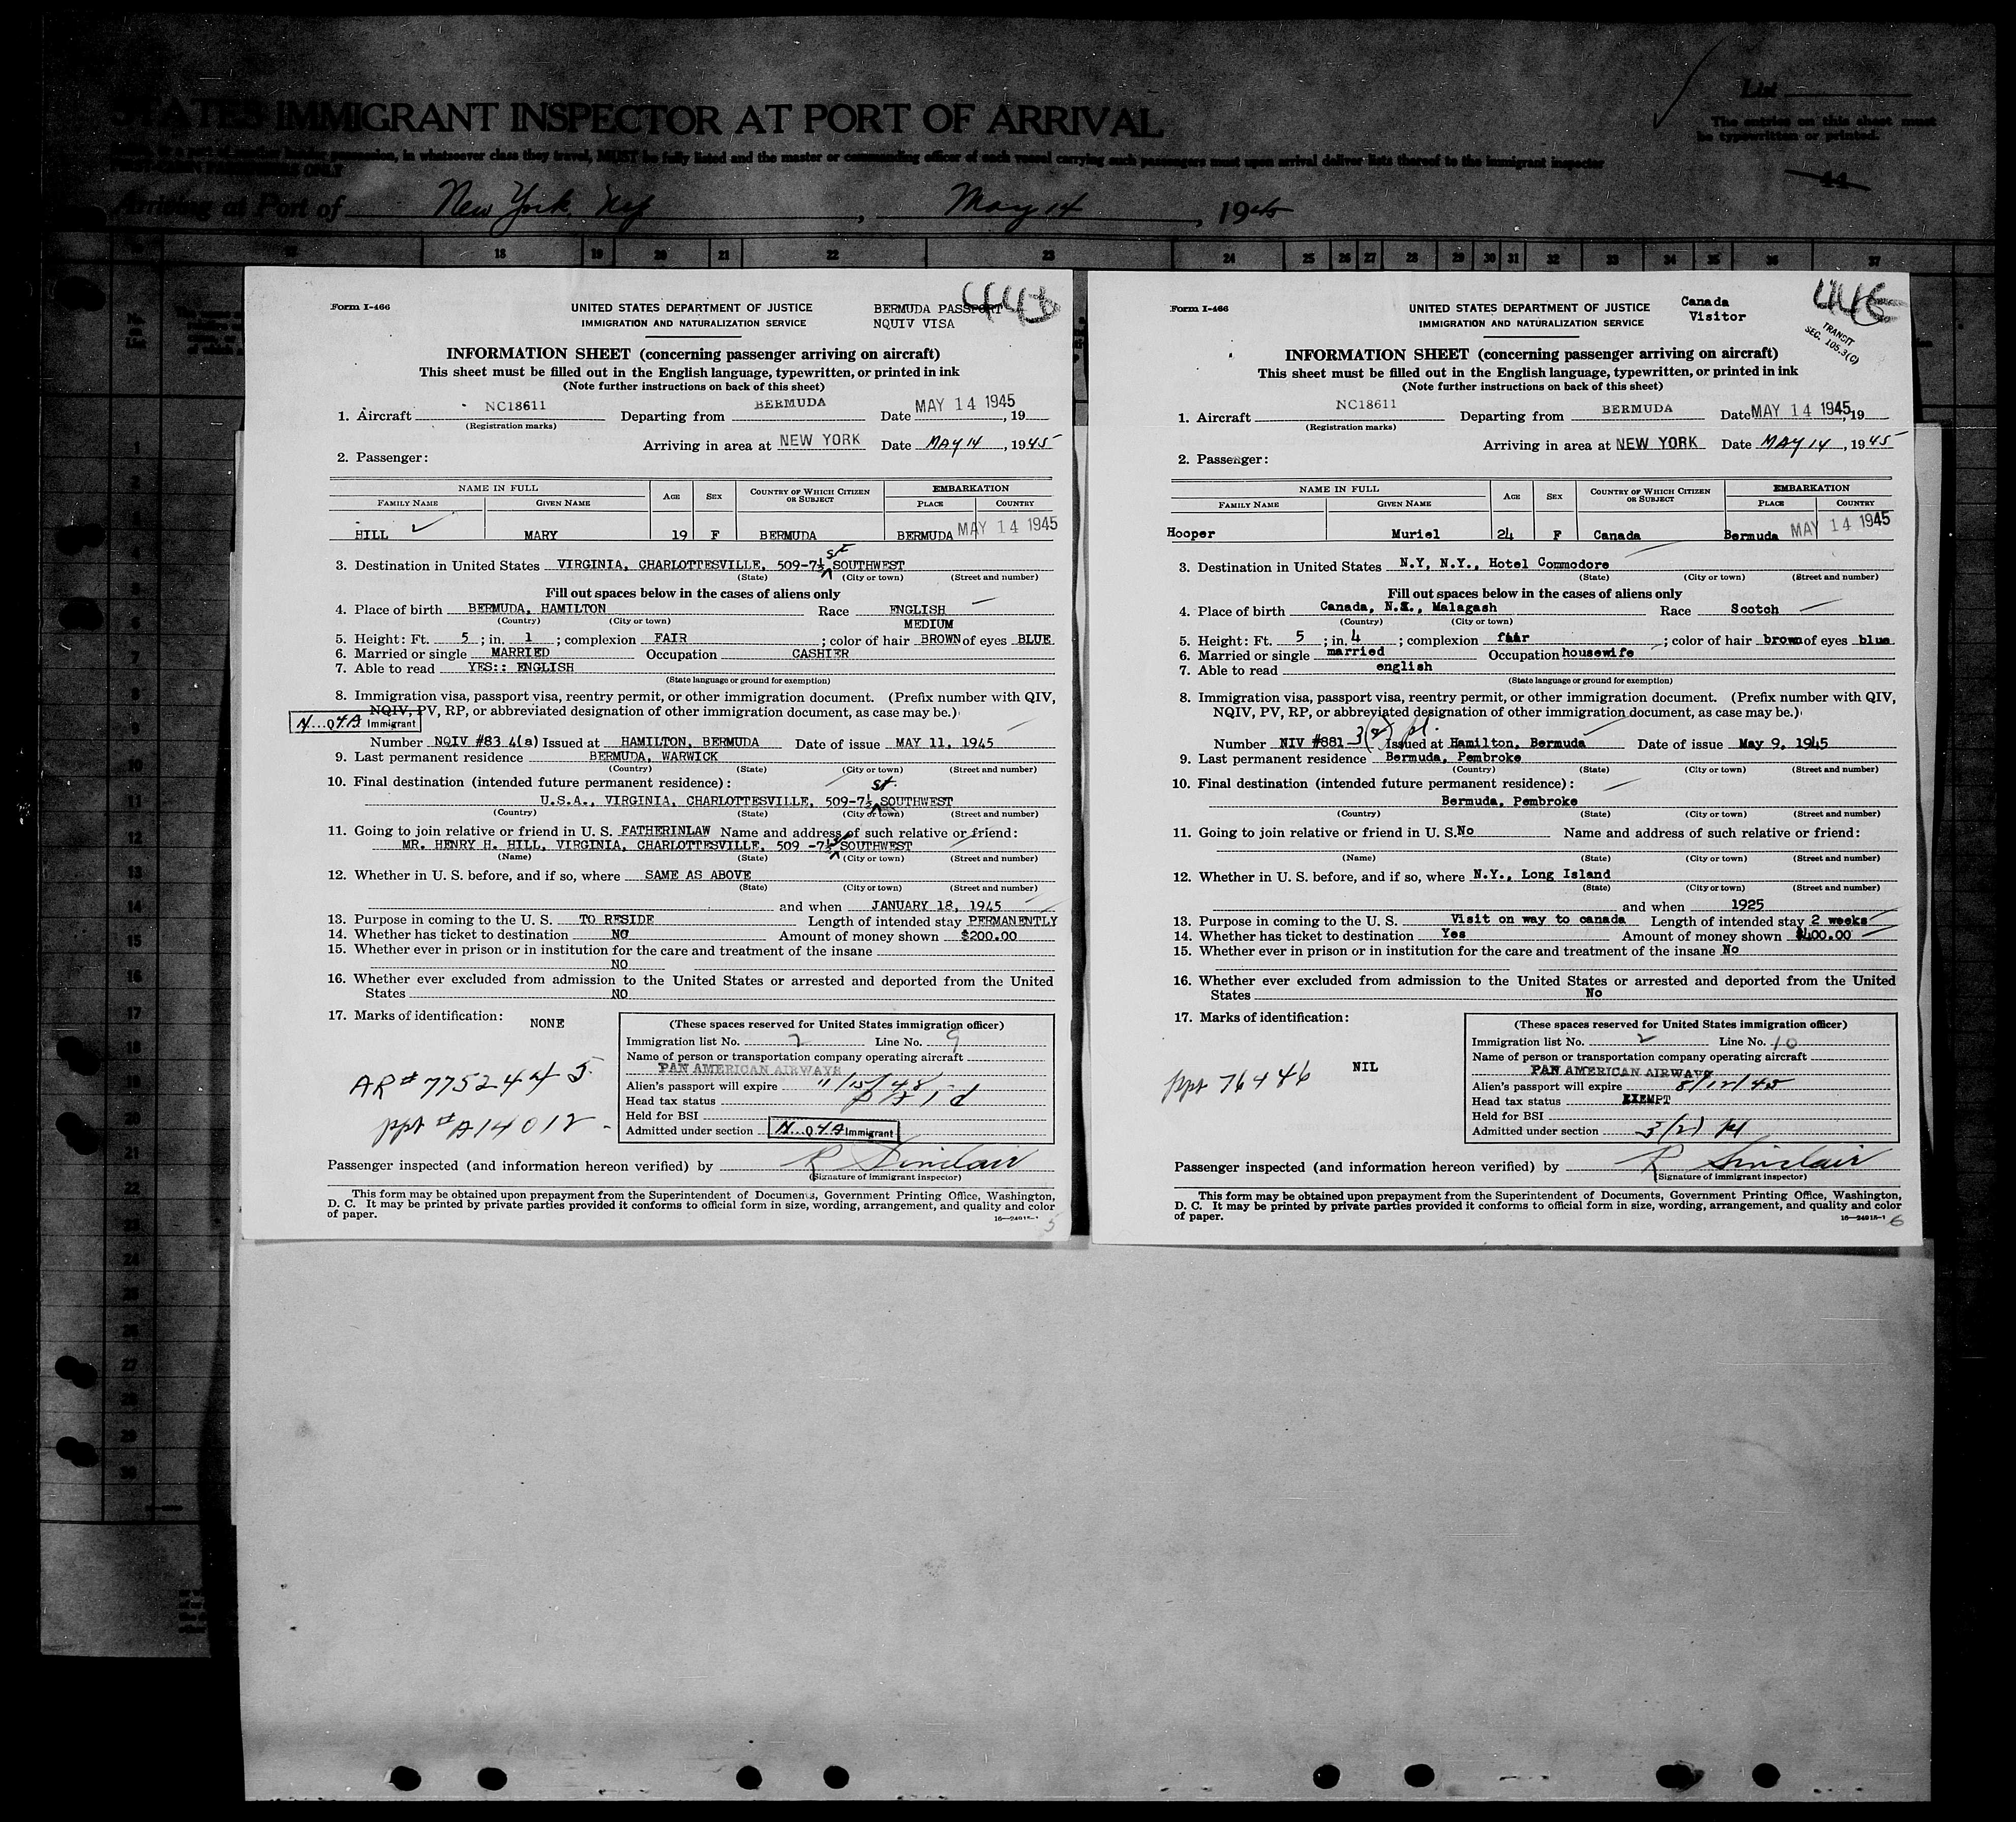 STATES IMMIGRANT INSPECTOR AT PORT OF ARRIVAL
List
The entries on this sheet must
be typewritten or printed.
in whatsoever class they travel, MUST be fully listed and the master or commanding officer of each vessel carrying such passengers must upon arrival deliver lists thereof to the immigrant inspector
44
Arriving at Port of New York, May 14, 1945
18 19 20 21 22 23 24 25 26 27 28 29 30 31 32 33 34 35 36 37
Form I-466
UNITED STATES DEPARTMENT OF JUSTICE
IMMIGRATION AND NATURALIZATION SERVICE
BERMUDA PASSPORT
NQUIV VISA
INFORMATION SHEET (concerning passenger arriving on aircraft)
This sheet must be filled out in the English language, typewritten, or printed in ink
(Note further instructions on back of this sheet)
1. Aircraft NC18611 Departing from BERMUDA Date MAY 14 1945, 19
(Registration marks)
Arriving in area at NEW YORK Date MAY 14, 1945
2. Passenger:
NAME IN FULL AGE SEX COUNTRY OF WHICH CITIZEN OR SUBJECT EMBARKATION
FAMILY NAME GIVEN NAME PLACE COUNTRY
HILL MARY 19 F BERMUDA BERMUDA MAY 14 1945
3. Destination in United States VIRGINIA, CHARLOTTESVILLE, 509-7½ st SOUTHWEST
(State) (City or town) (Street and number)
Fill out spaces below in the cases of aliens only
4. Place of birth BERMUDA, HAMILTON Race ENGLISH
(Country) (City or town) MEDIUM
5. Height: Ft. 5; in. 1; complexion FAIR; color of hair BROWN of eyes BLUE
6. Married or single MARRIED Occupation CASHIER
7. Able to read YES:: ENGLISH
(State language or ground for exemption)
8. Immigration visa, passport visa, reentry permit, or other immigration document. (Prefix number with QIV,
NQIV, PV, RP, or abbreviated designation of other immigration document, as case may be.)
N...Q 4A Immigrant
Number NQIV #83 4(a) Issued at HAMILTON, BERMUDA Date of issue MAY 11, 1945
9. Last permanent residence BERMUDA, WARWICK
(Country) (State) (City or town) (Street and number)
10. Final destination (intended future permanent residence):
U.S.A., VIRGINIA, CHARLOTTESVILLE, 509-7½ st. SOUTHWEST
(Country) (State) (City or town) (Street and number)
11. Going to join relative or friend in U. S. FATHERINLAW Name and address of such relative or friend:
MR. HENRY H. HILL, VIRGINIA, CHARLOTTESVILLE, 509 -7½ st SOUTHWEST
(Name) (State) (City or town) (Street and number)
12. Whether in U. S. before, and if so, where SAME AS ABOVE
(State) (City or town) (Street and number)
and when JANUARY 18, 1945
13. Purpose in coming to the U. S. TO RESIDE Length of intended stay PERMANENTLY
14. Whether has ticket to destination NO Amount of money shown $200.00
15. Whether ever in prison or in institution for the care and treatment of the insane
NO
16. Whether ever excluded from admission to the United States or arrested and deported from the United
States NO
17. Marks of identification: NONE
AR # 7752445
ppt # A14012
(These spaces reserved for United States immigration officer)
Immigration list No. 2 Line No. 9
Name of person or transportation company operating aircraft
PAN AMERICAN AIRWAYS
Alien's passport will expire 11/15/48
Head tax status
Held for BSI
Admitted under section N...Q 4A Immigrant
Passenger inspected (and information hereon verified) by R Sinclair
(Signature of immigrant inspector)
This form may be obtained upon prepayment from the Superintendent of Documents, Government Printing Office, Washington,
D. C. It may be printed by private parties provided it conforms to official form in size, wording, arrangement, and quality and color
of paper.
16—24915-1
5
Form I-466
UNITED STATES DEPARTMENT OF JUSTICE
IMMIGRATION AND NATURALIZATION SERVICE
Canada
Visitor
TRANSIT
SEC. 105.3(C)
INFORMATION SHEET (concerning passenger arriving on aircraft)
This sheet must be filled out in the English language, typewritten, or printed in ink
(Note further instructions on back of this sheet)
1. Aircraft NC18611 Departing from BERMUDA Date MAY 14 1945, 19
(Registration marks)
Arriving in area at NEW YORK Date MAY 14, 1945
2. Passenger:
NAME IN FULL AGE SEX COUNTRY OF WHICH CITIZEN OR SUBJECT EMBARKATION
FAMILY NAME GIVEN NAME PLACE COUNTRY
Hooper Muriel 24 F Canada Bermuda MAY 14 1945
3. Destination in United States N.Y, N.Y., Hotel Commodore
(State) (City or town) (Street and number)
Fill out spaces below in the cases of aliens only
4. Place of birth Canada, N.S., Malagash Race Scotch
(Country) (City or town)
5. Height: Ft. 5; in. 4; complexion fair; color of hair brown of eyes blue
6. Married or single married Occupation housewife
7. Able to read english
(State language or ground for exemption)
8. Immigration visa, passport visa, reentry permit, or other immigration document. (Prefix number with QIV,
NQIV, PV, RP, or abbreviated designation of other immigration document, as case may be.)
Number NIV #881 3(2) pl. Issued at Hamilton, Bermuda Date of issue May 9, 1945
9. Last permanent residence Bermuda, Pembroke
(Country) (State) (City or town) (Street and number)
10. Final destination (intended future permanent residence):
Bermuda, Pembroke
(Country) (State) (City or town) (Street and number)
11. Going to join relative or friend in U. S. No Name and address of such relative or friend:
(Name) (State) (City or town) (Street and number)
12. Whether in U. S. before, and if so, where N.Y., Long Island
(State) (City or town) (Street and number)
and when 1925
13. Purpose in coming to the U. S. Visit on way to canada Length of intended stay 2 weeks
14. Whether has ticket to destination Yes Amount of money shown $400.00
15. Whether ever in prison or in institution for the care and treatment of the insane No
16. Whether ever excluded from admission to the United States or arrested and deported from the United
States No
17. Marks of identification: NIL
ppt 76446
(These spaces reserved for United States immigration officer)
Immigration list No. 2 Line No. 10
Name of person or transportation company operating aircraft
PAN AMERICAN AIRWAYS
Alien's passport will expire 8/12/45
Head tax status EXEMPT
Held for BSI
Admitted under section 3(2) pl
Passenger inspected (and information hereon verified) by R Sinclair
(Signature of immigrant inspector)
This form may be obtained upon prepayment from the Superintendent of Documents, Government Printing Office, Washington,
D. C. It may be printed by private parties provided it conforms to official form in size, wording, arrangement, and quality and color
of paper.
16—24915-1
6